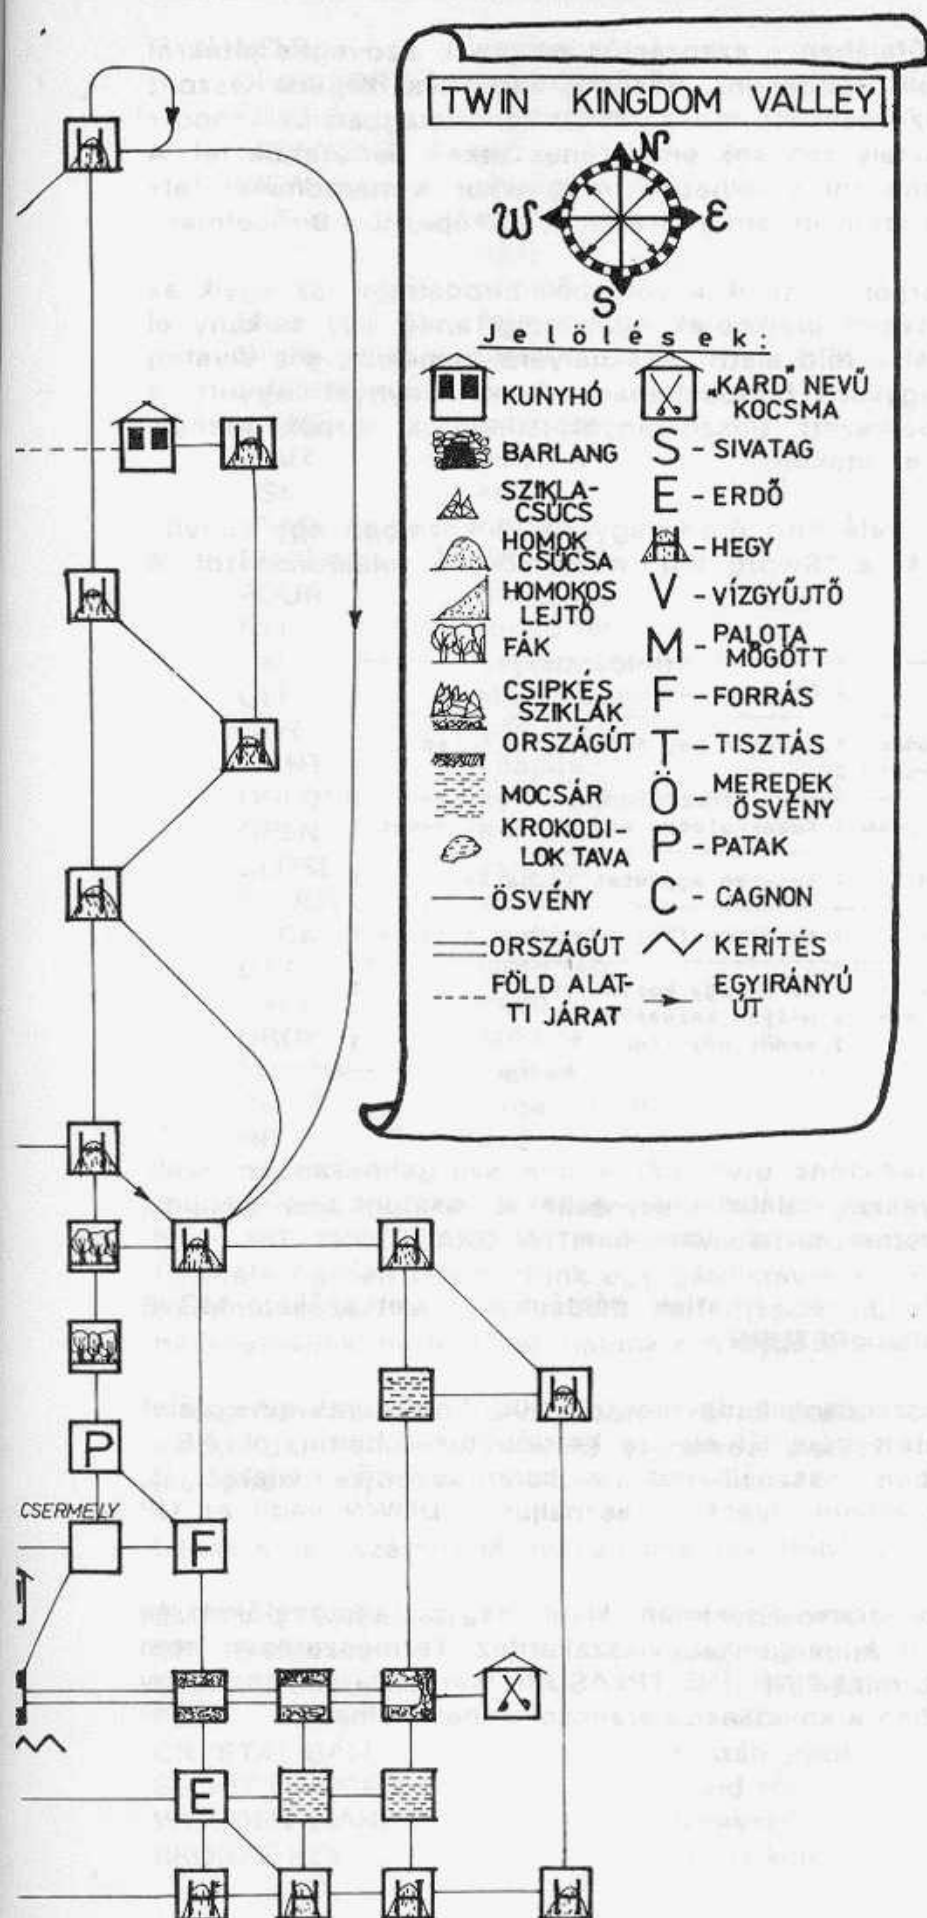 TWIN KINGDOM VALLEY
N
W
E
S
Jelölések:
KUNYHÓ
BARLANG
SZIKLA-
CSÚCS
HOMOK
CSÚCSA
HOMOKOS
LEJTŐ
FÁK
CSIPKÉS
SZIKLÁK
ORSZÁGÚT
MOCSÁR
KROKODI-
LOK TAVA
ÖSVÉNY
ORSZÁGÚT
FÖLD ALAT-
TI JÁRAT
"KARD" NEVŰ
KOCSMA
S - SIVATAG
E - ERDŐ
- HEGY
V - VÍZGYŰJTŐ
M - PALOTA
MÖGÖTT
F - FORRÁS
T - TISZTÁS
Ö - MEREDEK
ÖSVÉNY
P - PATAK
C - CAGNON
KERÍTÉS
EGYIRÁNYÚ
ÚT
P
CSERMELY
F
E